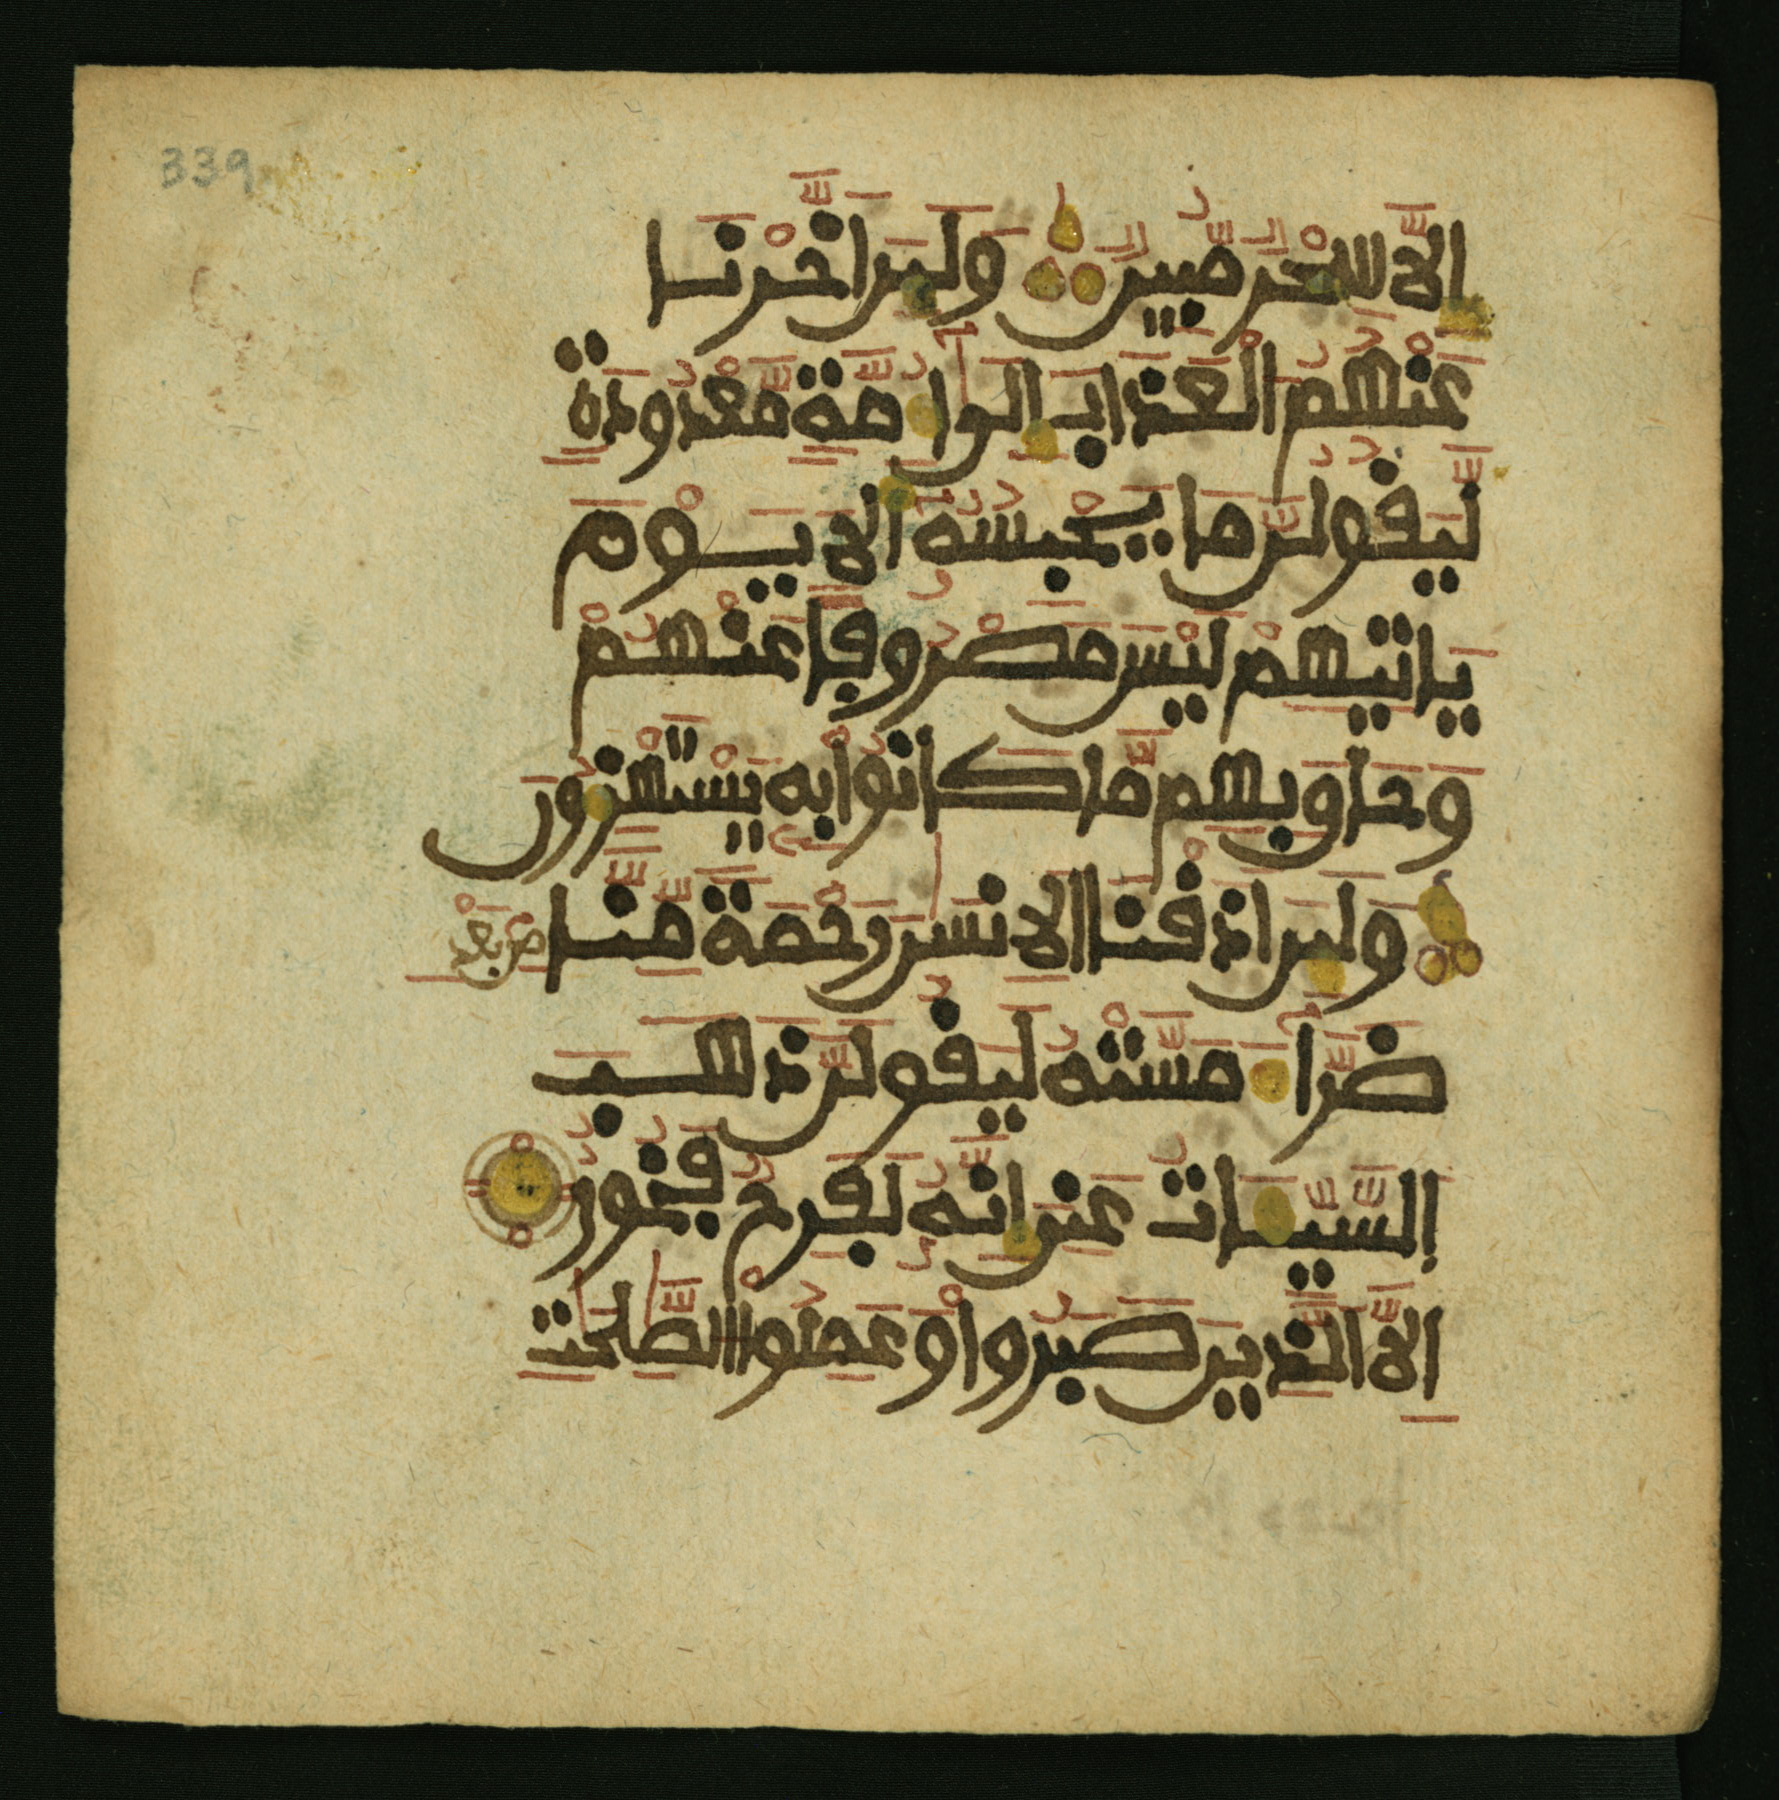 339
اِلَّا سِحْرٌ مُّبِينٌ وَلَئِنَ اَخَّرْنَا
عَنْهُمُ الْعَذَابَ إِلَىٰ أُمَّةٍ مَّعْدُودَةٍ
لَّيَقُولُنَّ مَا يَحْبِسُهُ أَلَا يَوْمَ
يَاتِيهِمْ لَيْسَ مَصْرُوفًا عَنْهُمْ
وَحَاقَ بِهِم مَّا كَانُوا بِهِ يَسْتَهْزِءُونَ
وَلَئِنَ اَذَقْنَا الْاِنسَٰنَ رَحْمَةً مِّنَّا مِن بَعْدِ
ضَرَّاءَ مَسَّتْهُ لَيَقُولَنَّ ذَهَبَ
السَّيِّـَٔاتُ عَنِّيَ إِنَّهُ لَفَرِحٌ فَخُورٌ
اِلَّا الَّذِينَ صَبَرُوا وَعَمِلُوا الصَّٰلِحَٰتِ